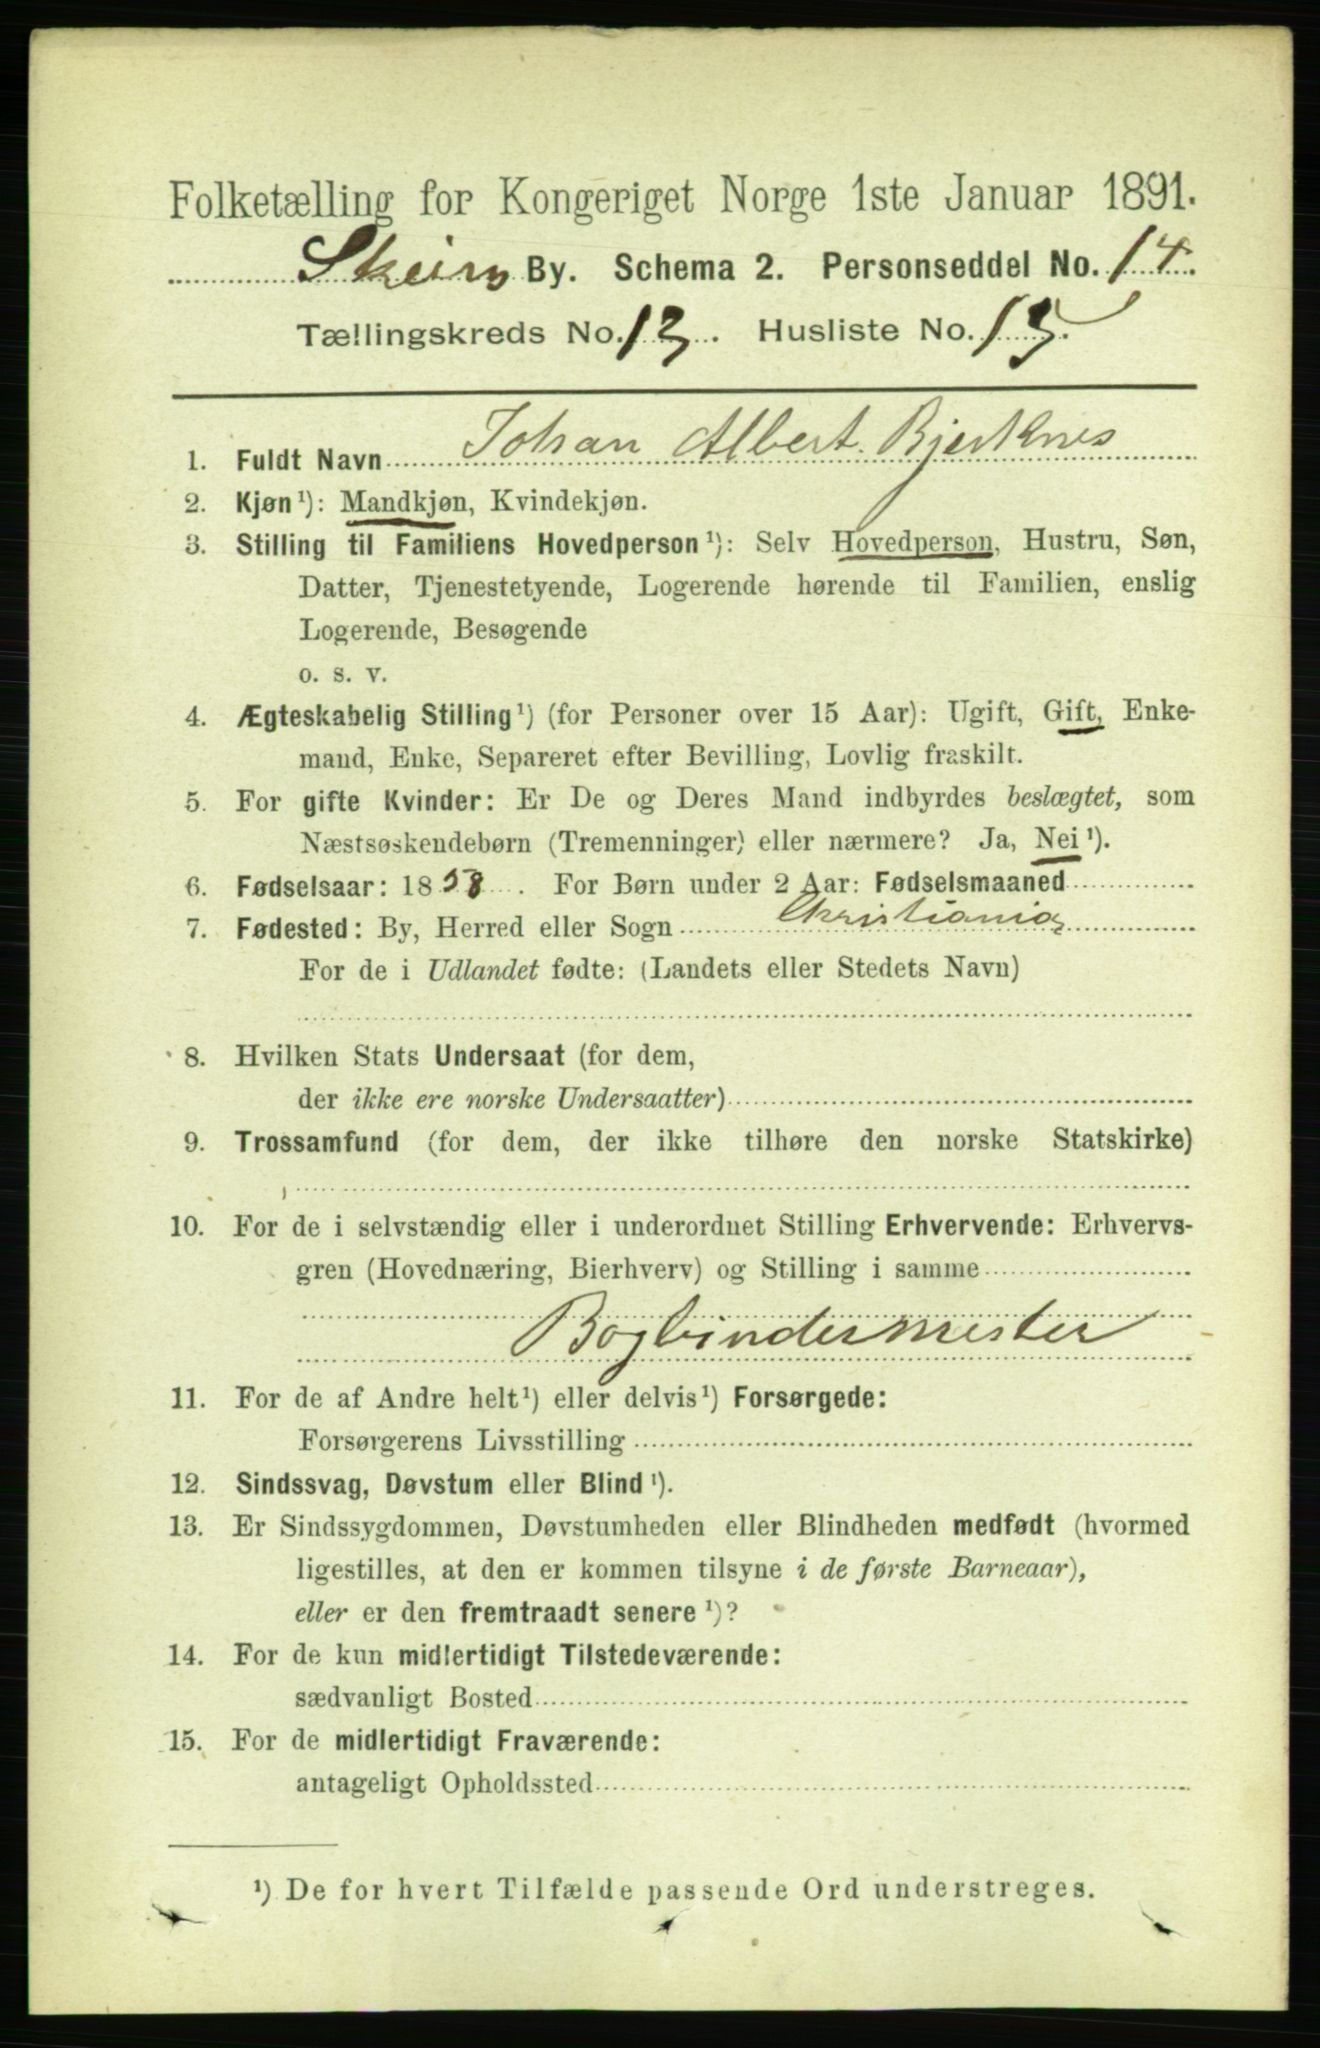 Folketælling for Kongeriget Norge 1ste Januar 1891.
Skien By. Schema 2. Personseddel No. 14.
Tællingskreds No. 13. Husliste No. 15.
1. Fuldt Navn Johan Albert Bjerknes
2. Kjøn¹): Mandkjøn, Kvindekjøn.
3. Stilling til Familiens Hovedperson¹): Selv Hovedperson, Hustru, Søn,
Datter, Tjenestetyende, Logerende hørende til Familien, enslig
Logerende, Besøgende
o. s. v.
4. Ægteskabelig Stilling¹) (for Personer over 15 Aar): Ugift, Gift, Enke-
mand, Enke, Separeret efter Bevilling, Lovlig fraskilt.
5. For gifte Kvinder: Er De og Deres Mand indbyrdes beslægtet, som
Næstsøskendebørn (Tremenninger) eller nærmere? Ja, Nei¹).
6. Fødselsaar: 1858. For Børn under 2 Aar: Fødselsmaaned
7. Fødested: By, Herred eller Sogn Christiania
For de i Udlandet fødte: (Landets eller Stedets Navn)
8. Hvilken Stats Undersaat (for dem,
der ikke ere norske Undersaatter)
9. Trossamfund (for dem, der ikke tilhøre den norske Statskirke)
10. For de i selvstændig eller i underordnet Stilling Erhvervende: Erhvervs-
gren (Hovednæring, Bierhverv) og Stilling i samme
Bogbindermester
11. For de af Andre helt¹) eller delvis¹) Forsørgede:
Forsørgerens Livsstilling
12. Sindssvag, Døvstum eller Blind¹).
13. Er Sindssygdommen, Døvstumheden eller Blindheden medfødt (hvormed
ligestilles, at den er kommen tilsyne i de første Barneaar),
eller er den fremtraadt senere¹)?
14. For de kun midlertidigt Tilstedeværende:
sædvanligt Bosted
15. For de midlertidigt Fraværende:
antageligt Opholdssted
¹) De for hvert Tilfælde passende Ord understreges.